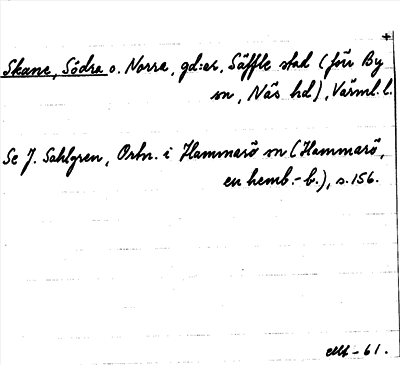 +
Skane, Södra o. Norra, gd:ar, Säffle stad (förr By
sn, Näs hd), Värml. l.
Se J. Sahlgren, Ortn. i Hammarö sn (Hammarö,
en hemb.-b.), s. 156.
-61.